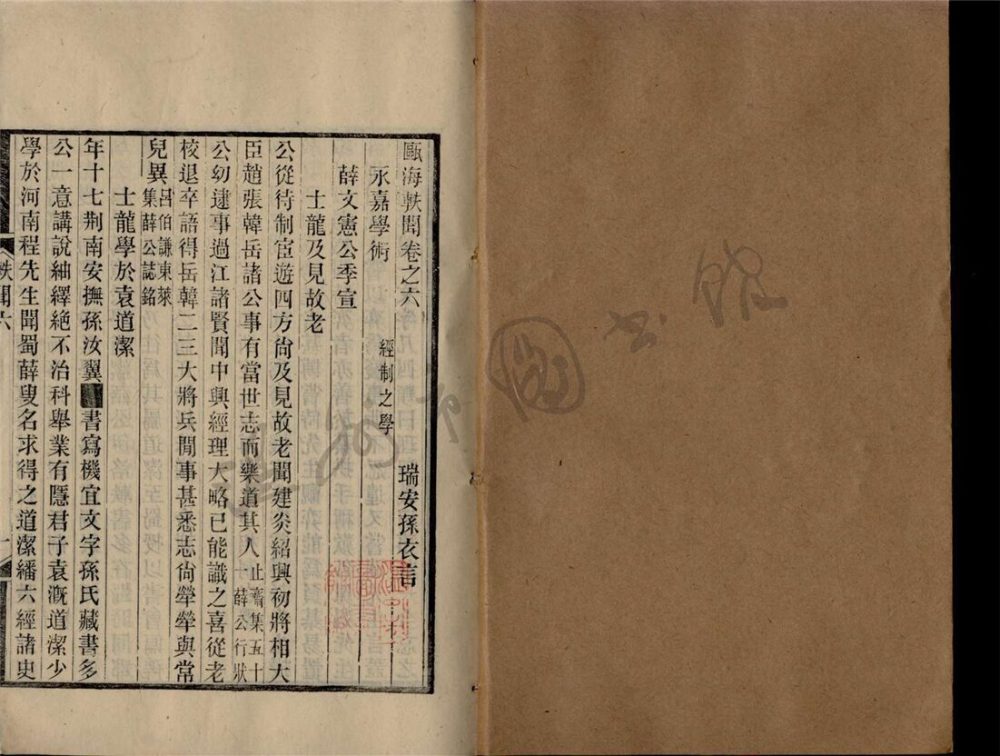 甌海軼聞卷之六
瑞安孫衣言
永嘉學術
經制之學
薛文憲公季宣
士龍及見故老
公從待制宦遊四方尙及見故老聞建炎紹興初將相大
臣趙張韓岳諸公事有當世志而樂道其人止齋集五十
薛公行狀
公幼逮事過江諸賢聞中興經理大略已能識之喜從老
校退卒語得岳韓二三大將兵閒事甚悉志尙犖犖與常
兒異呂伯謙東萊
集薛公誌銘
士龍學於袁道潔
年十七荆南安撫孫汝翼書寫機宜文字孫氏藏書多
公一意講說紬繹絕不治科舉業有隱君子袁漑道潔少
學於河南程先生聞蜀薛叟名求得之道潔繙六經諸史
軼聞六
圖書館